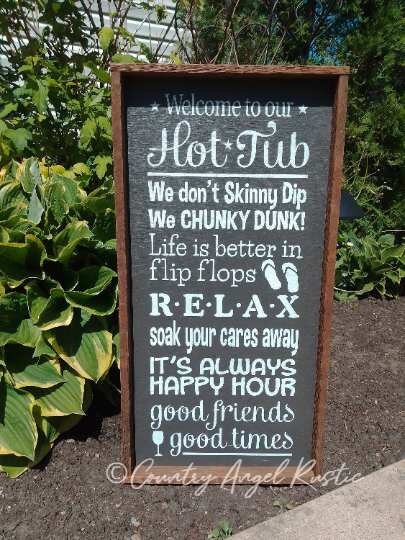 Welcome to our
Hot Tub
We don't Skinny Dip
We CHUNKY DUNK!
Life is better in
flip flops
R·E·L·A·X
soak your cares away
IT'S ALWAYS
HAPPY HOUR
good friends
good times
© Country Angel Rustic